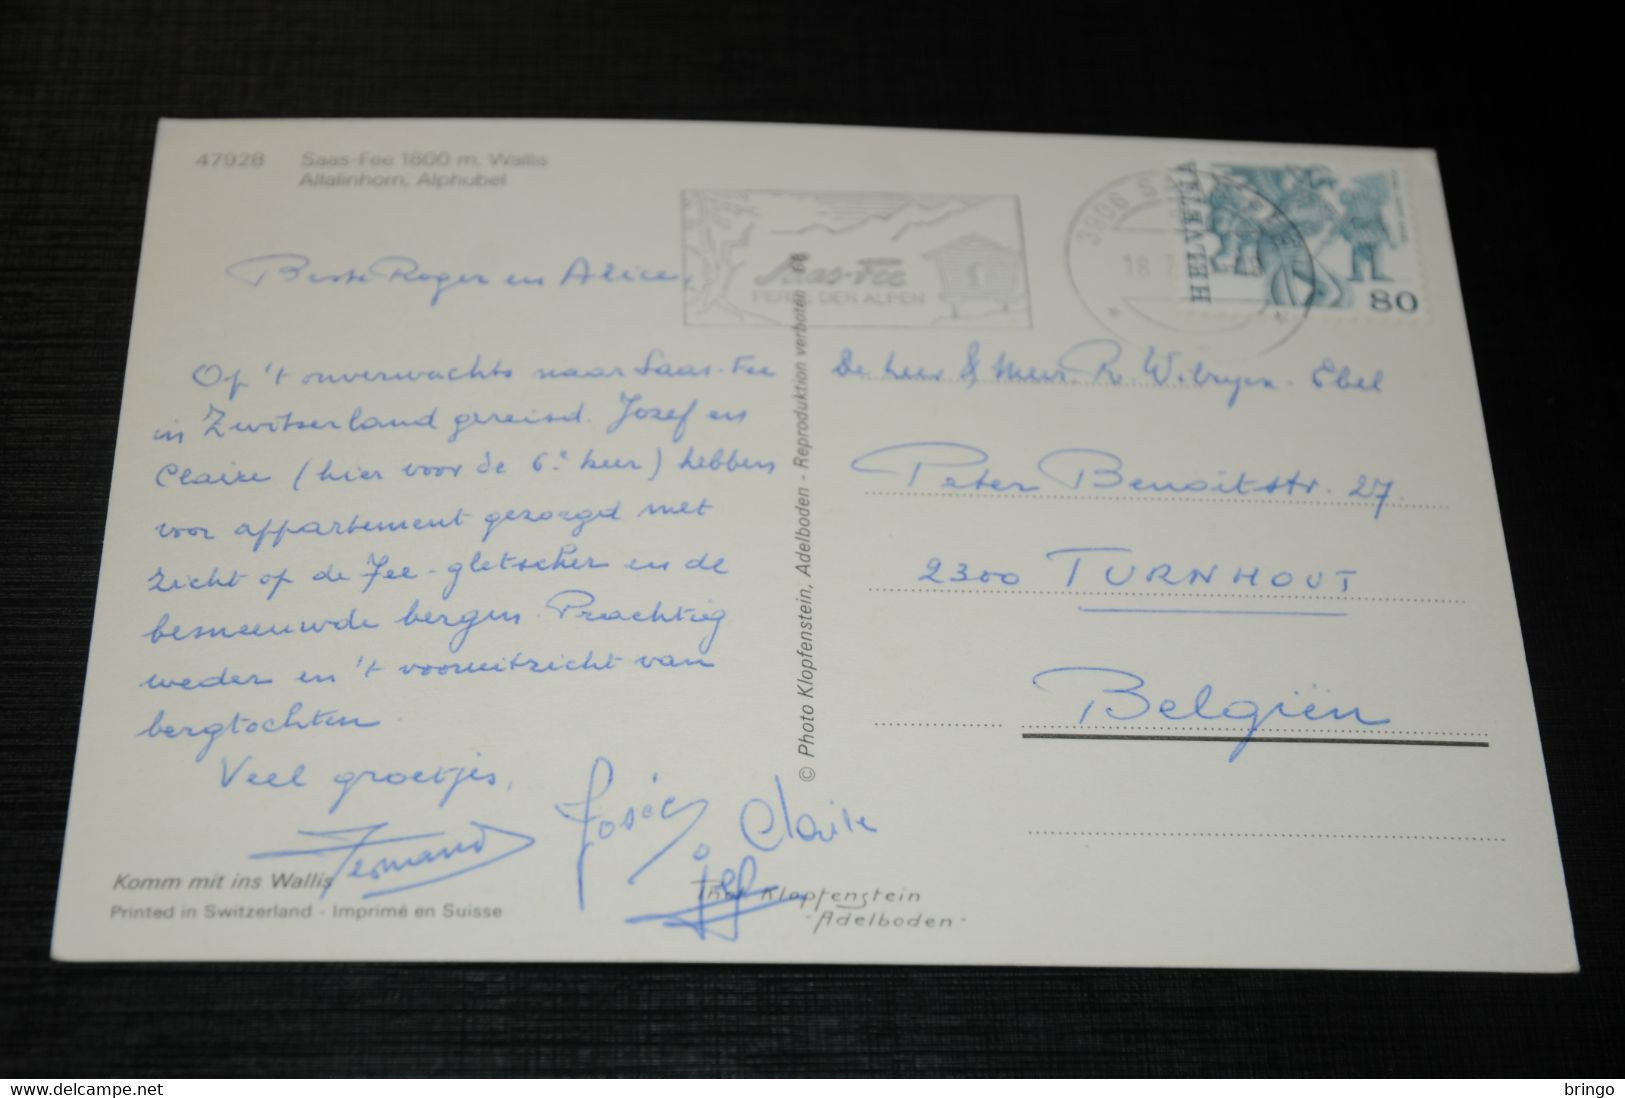 47928 Saas-Fee 1800 m. Wallis
Allalinhorn, Alphubel
Saas-Fee
PERLE DER ALPEN
3906
18
HELVETIA
80
Beste Roger en Alice,
Op 't onverwachts naar Saas-Fee
in Zwitserland gereisd. Jozef en
Claire (hier voor de 6e keer) hebben
voor appartement gezorgd met
zicht op de Fee-gletscher en de
besneeuwde bergen. Prachtig
weder en 't vooruitzicht van
bergtochten.
Veel groetjes,
Fernand Josée Claire
Jef
De heer & Mevr. R. Wilrycx-Ebel
Peter Benoitstr. 27.
2300 TURNHOUT
Belgiën
© Photo Klopfenstein, Adelboden - Reproduktion verboten
Komm mit ins Wallis
Printed in Switzerland - Imprimé en Suisse
Phot Klopfenstein
- Adelboden -
bringo
www.delcampe.net